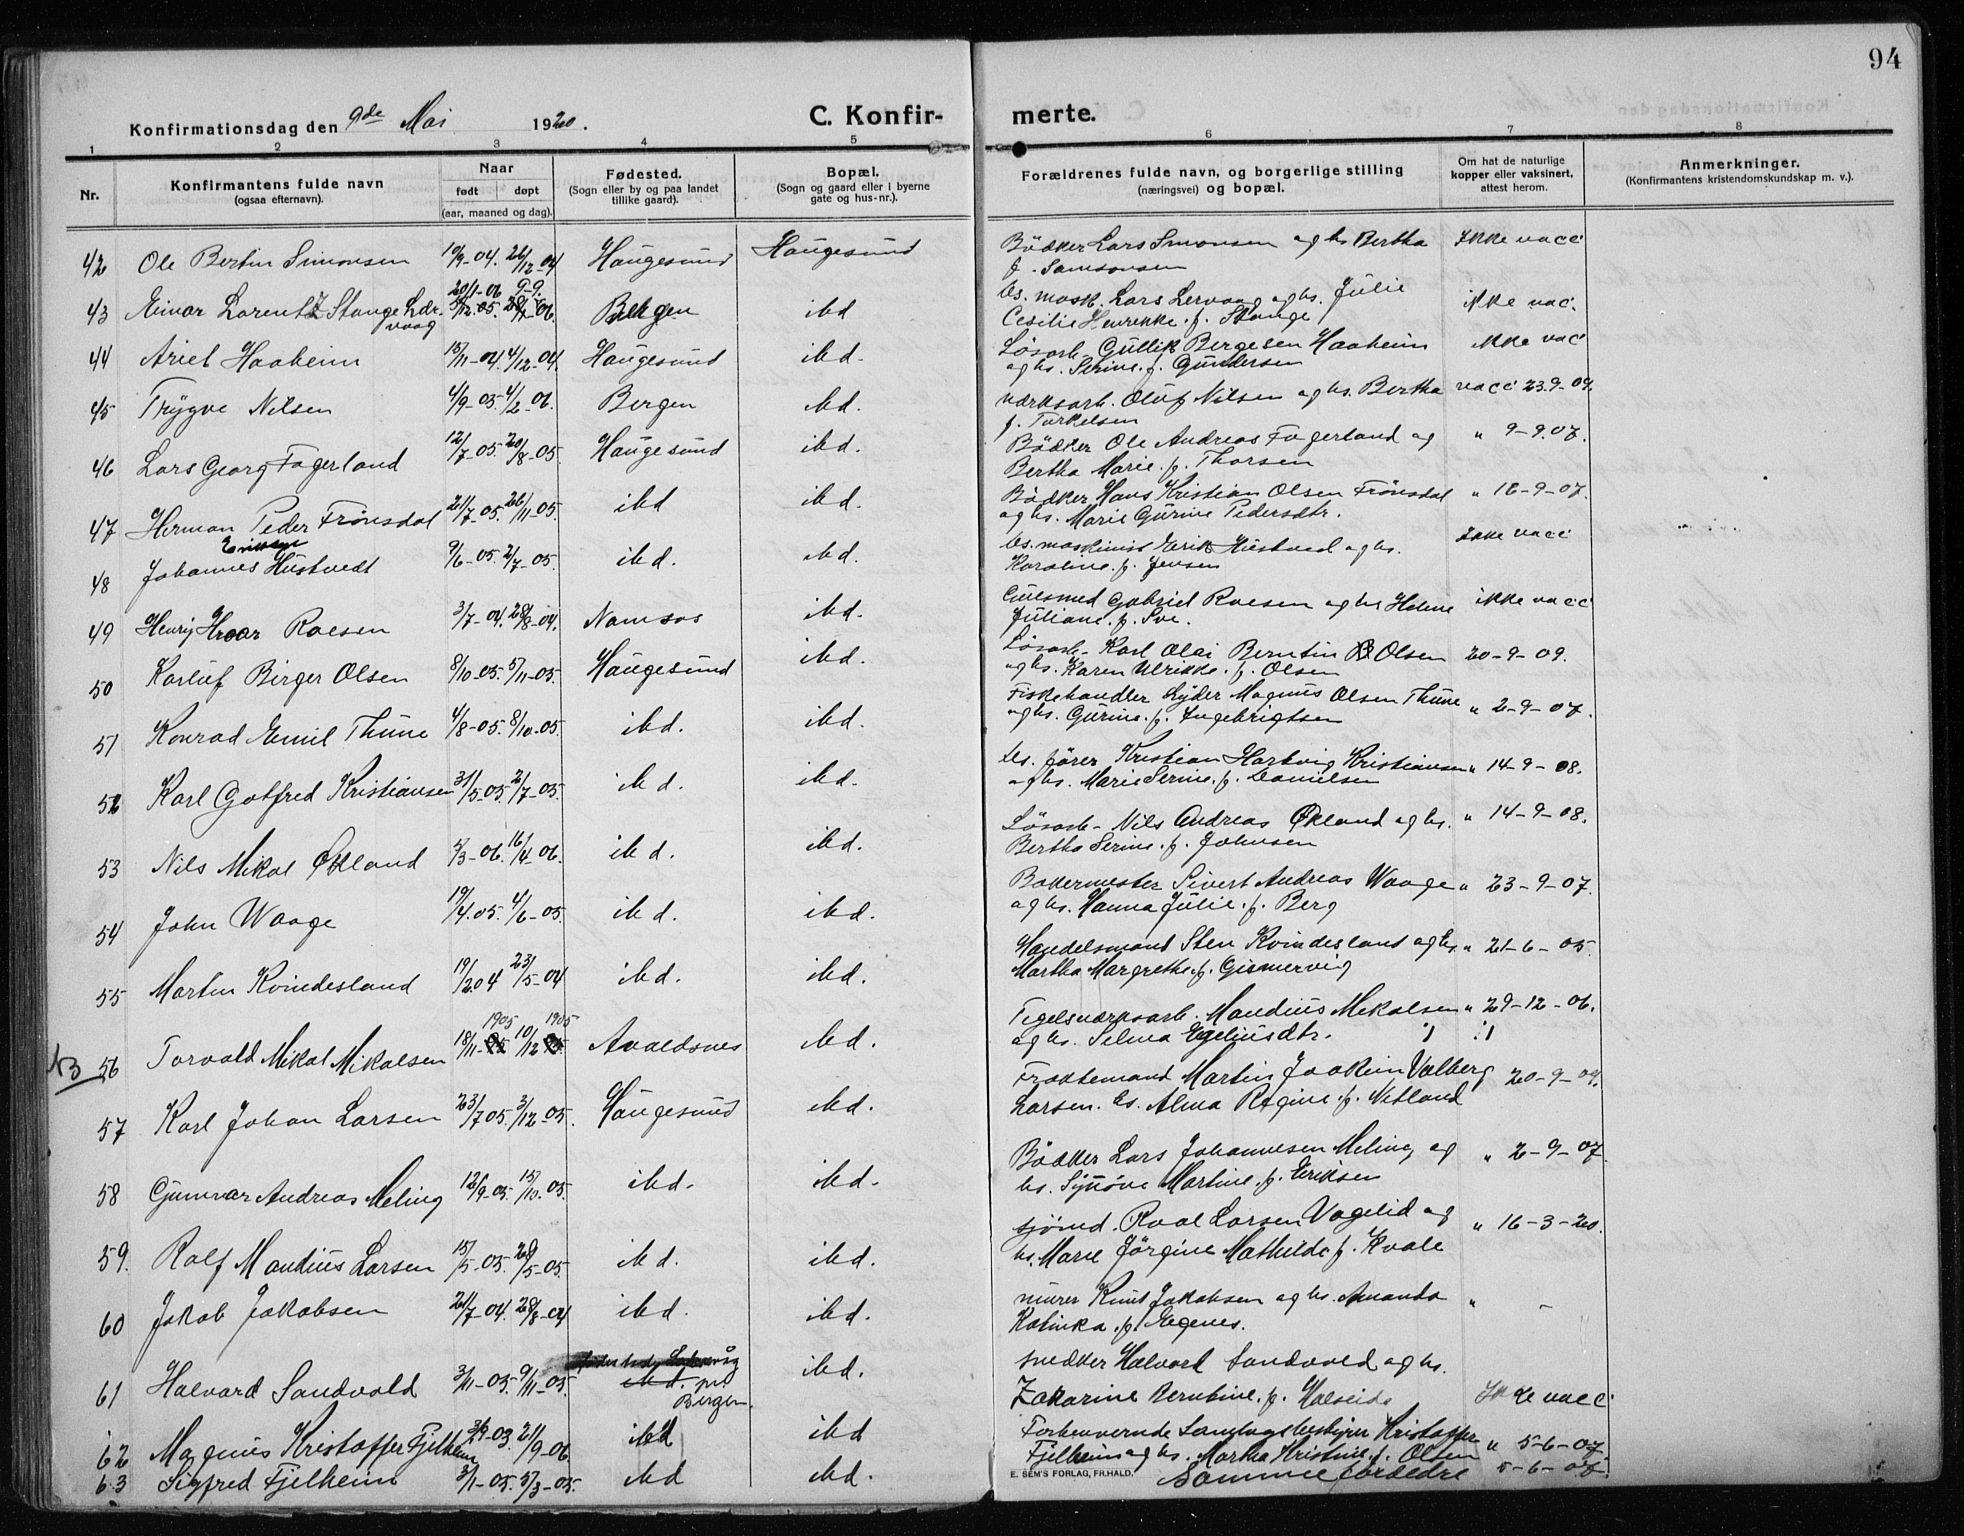 94
Konfirmationsdag den 9de Mai 1920.
C. Konfir-
merte.
1 2 3 4 5 6 7 8
Nr.
Konfirmantens fulde navn
(ogsaa efternavn).
Naar
født døpt
(aar, maaned og dag).
Fødested.
(Sogn eller by og paa landet
tillike gaard).
Bopæl.
(Sogn og gaard eller i byerne
gate og hus-nr.).
Forældrenes fulde navn, og borgerlige stilling
(næringsvei) og bopæl.
Om hat de naturlige
kopper eller vaksinert,
attest herom.
Anmerkninger.
(Konfirmantens kristendomskundskap m. v.).
42 Ole Bertin Simonsen 19/9-04. 26/12-04 Haugesund Haugesund Bödker Lars Simonsen og hs Bertha Ikke vacc
f. Samsonsen
20/1-06 9-9.
43 Einar Lorentz Stange Lær- Bergen ibd hs. mask. Lars Lervaag og hs. Julie ikke vac.
vaag Cesilie Henrekke f. Stange
44 Ariel Haaheim 15/11-04. 4/12-04. Haugesund ibd. Løsarb. Gullik Bergesen Haaheim ikke vac
og hs. Serine f. Gundersen
45 Trygve Nilsen 4/9-05 4/2-06. Bergen ibd. værksarb. Oluf Nilsen og hs. Bertha vacc 23.9-09.
f. Torkelsen
46 Lars Georg Fagerland 12/7-05. 20/8-05 Haugesund ibd. Bödker Ole Andreas Fagerland og " 9-9.07.
Bertha Marie f. Thorsen
47 Herman Peder Frönsdal 21/7-05. 26/11-05. ibd ibd. Bödker Hans Kristian Olsen Frönsdal " 16-9-07.
og hs. Marie Gurine Pedersdtr.
Eriksen
48 Johannes Hustvedt 9/6-05. 2/7-05. ibd. ibd. hs. maskinist Erik Hustved og hs. Ikke vacc
Karoline f. Jensen
49 Henry Hroar Roesen 3/7-04. 28/8-04. Namsos ibd. Gabriel Roesen og hs Helene ikke vacc
Juliane f. Sve.
50 Karluf Birger Olsen 8/10-05. 5/11-05. Haugesund ibd. Løsarb. Karl Olai Berntin Olsen 20-9-09.
og hs. Karen Ulrikke f. Olsen
51 Konrad Emil Thune 4/8-05. 8/10-05. ibd. ibd. Fiskehandler Lyder Magnus Olsen Thune " 2-9-07.
og hs. Gurine f. Ingebrigtsen
52 Karl Gotfred Kristiansen 31/5-05. 2/7-05. ibd. ibd. hs. fører Kristian Hartvig Kristiansen " 14-9-08.
og hs. Marie Serine f. Danielsen
53 Nils Mikal Økland 5/3-06. 16/4-06. ibd. ibd. Løsarb. Nils Andreas Økland og hs. " 14-9-08.
Bertha Serine f. Johnsen
54 John Waage 19/4.05. 4/6-05. ibd. ibd. Bakermester Sivert Andreas Waage " 23-9-07.
og hs. Hanna Julie f. Berg
55 Martin Kvindesland 19/2.04 23/5-04 ibd. ibd. Handelsmand Sten Kvindesland og hs. " 21-6-05.
Martha Margrethe f. Gismervig
1905 1905
NB 56 Torvald Mikal Mikalsen 18/11 10/12 Avaldsnes ibd. Tegelsværksarb. Mandius Mikalsen " 29-12-06.
og hs. Selma Egeliusdtr.
57 Karl Johan Larsen 23/7 05. 3/12-05. Haugesund ibd. Fraktemand Martin Joakim Valberg 20-9-09.
Larsen. hs. Alma Regine f. Netland
58 Gunnar Andreas Meling 12/9-05. 15/10.05. ibd. ibd. Bödker Lars Johannesen Meling og " 2-9-07.
hs. Synöve Martine f. Eriksen
59. Ralf Mandius Larsen 15/5-05. 28/5-05. ibd. ibd. sjömd. Roal Larsen Vagelid og " 16-3-20.
hs. Marie Jörgine Mathilde f. Kvale
60 Jakob Jakobsen 21/7-04. 28/8-04 ibd. ibd. murer Knut Jakobsen og hs. Amanda " -
Katinka f. Egenes.
61 Halvard Sandvold 3/11-05. 9/11-05. ibd. pr. Bergen. ibd. snedker Halvard Sandvold og hs.
Zakarine Berntine f. Halseide Ikke vacc
62 Magnus Kristoffer Fjelheim 3/9-03. 21/9-06. ibd ibd Forhenværende Kristoffer
Fjelheim og hs. Martha Kristine f. Olsen " 5-6-07
63 Sigfred Fjelheim 3/1-05. 5/3-05. ibd ibd. Samme forældre 5-6-07
E. SEM'S FORLAG, FR.HALD.